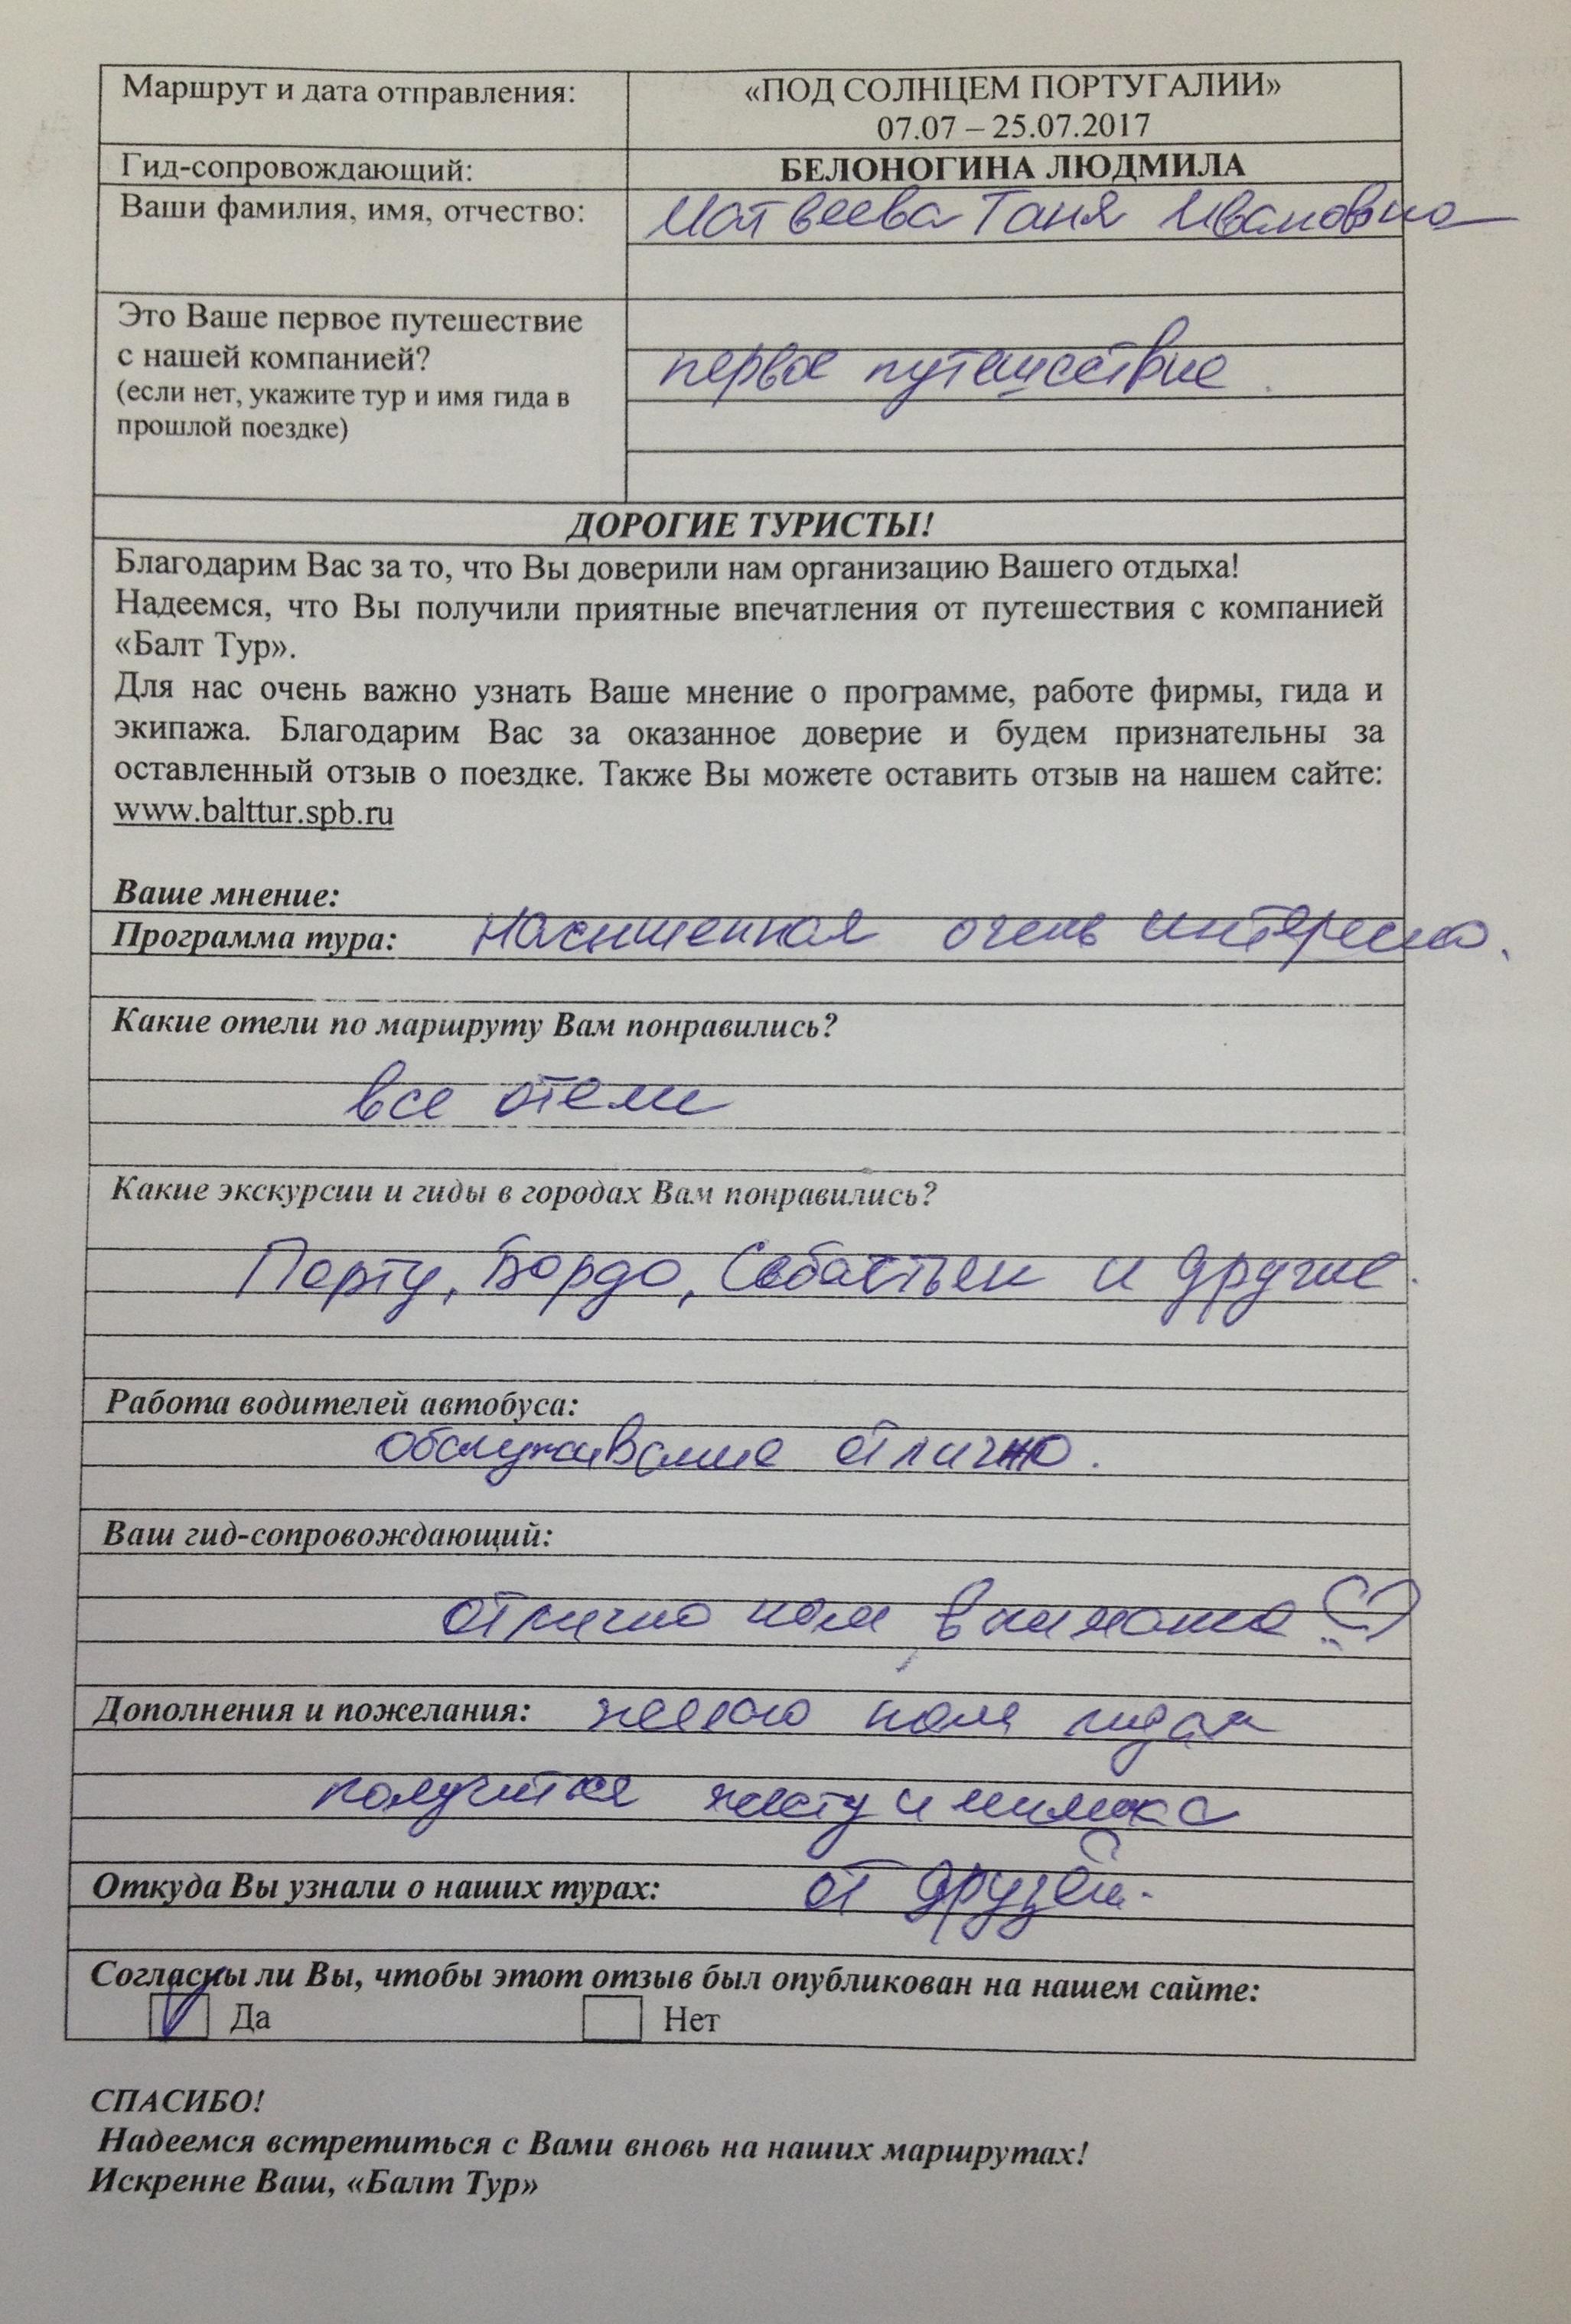 Маршрут и дата отправления:
«ПОД СОЛНЦЕМ ПОРТУГАЛИИ»
07.07 – 25.07.2017
Гид-сопровождающий:
БЕЛОНОГИНА ЛЮДМИЛА
Ваши фамилия, имя, отчество:
Матвеева Таня Ивановна
Это Ваше первое путешествие
с нашей компанией?
(если нет, укажите тур и имя гида в
прошлой поездке)
первое путешествие
ДОРОГИЕ ТУРИСТЫ!
Благодарим Вас за то, что Вы доверили нам организацию Вашего отдыха!
Надеемся, что Вы получили приятные впечатления от путешествия с компанией
«Балт Тур».
Для нас очень важно узнать Ваше мнение о программе, работе фирмы, гида и
экипажа. Благодарим Вас за оказанное доверие и будем признательны за
оставленный отзыв о поездке. Также Вы можете оставить отзыв на нашем сайте:
www.balttur.spb.ru
Ваше мнение:
Программа тура: насышенная очень интересно.
Какие отели по маршруту Вам понравились?
все отели
Какие экскурсии и гиды в городах Вам понравились?
Порту, Бордо, Себастьен и другие.
Работа водителей автобуса:
обслуживание отлично.
Ваш гид-сопровождающий:
отлично нам внимание
Дополнения и пожелания: желаю нам гидам
получится жесту и мимика
Откуда Вы узнали о наших турах: от друзей.
Согласны ли Вы, чтобы этот отзыв был опубликован на нашем сайте:
Да Нет
СПАСИБО!
Надеемся встретиться с Вами вновь на наших маршрутах!
Искренне Ваш, «Балт Тур»